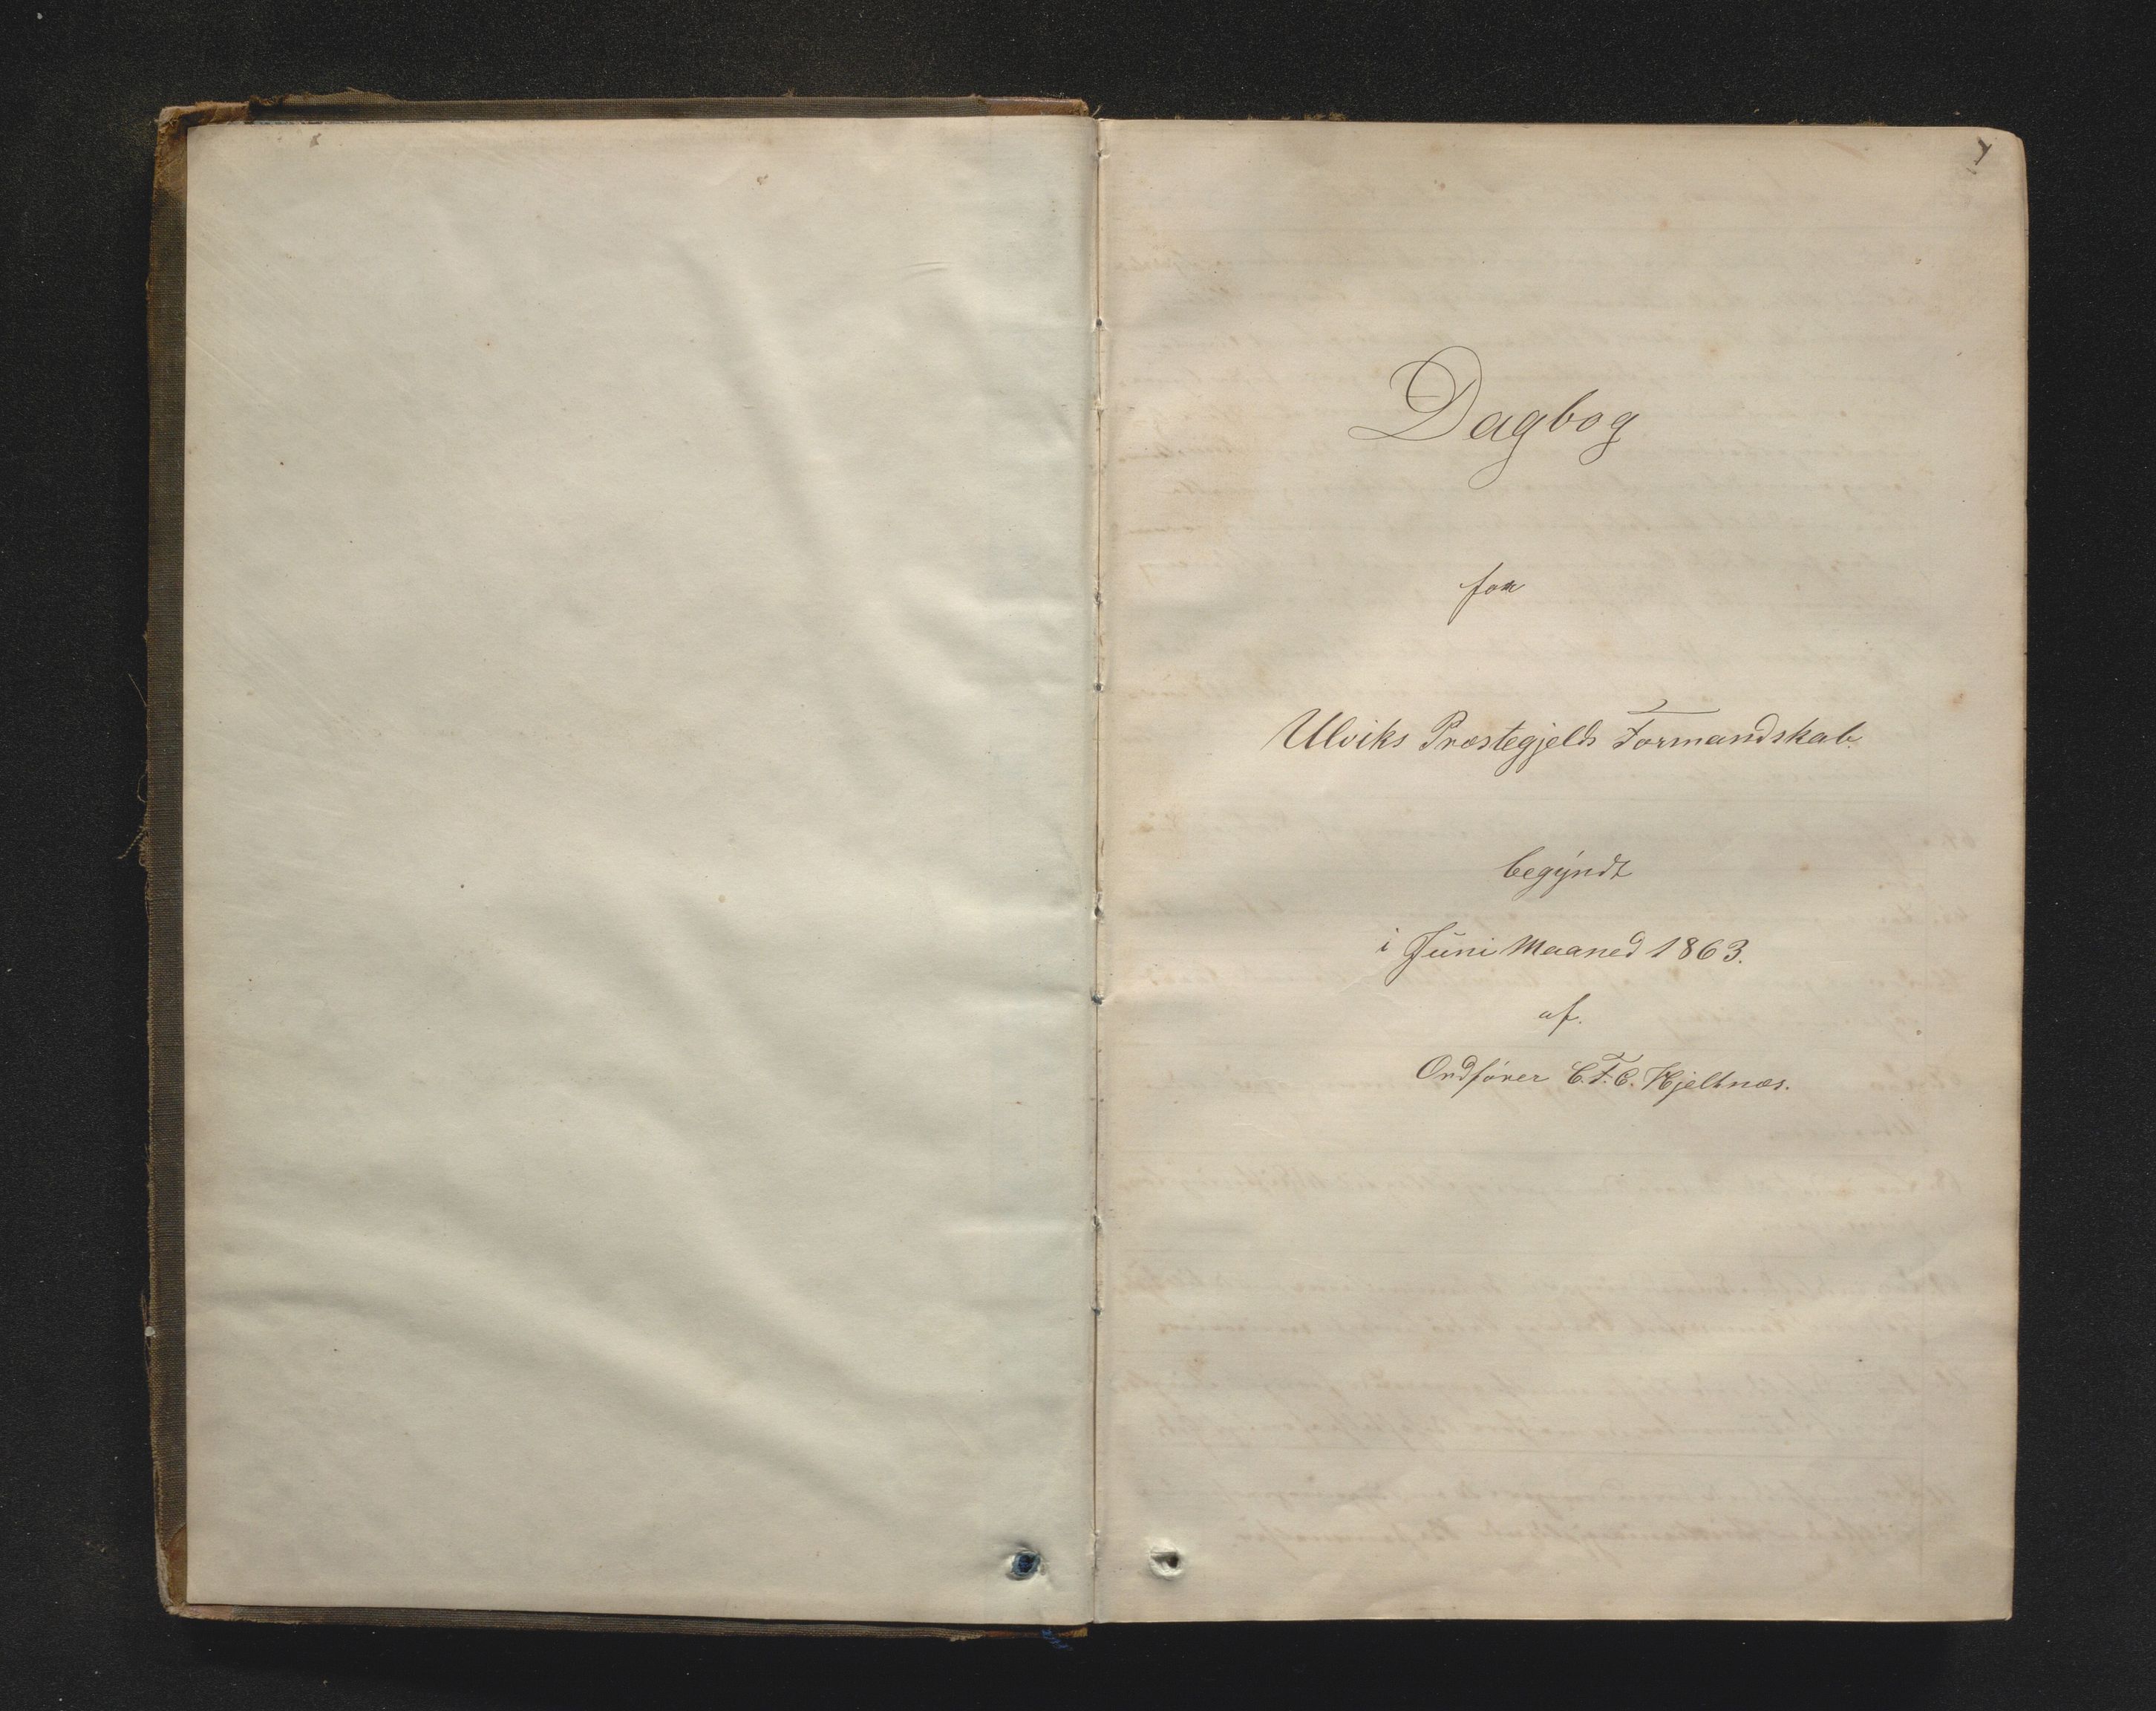 Dagbog
for
Ulviks Præstegjelds Formandskab.
begÿndt
i Juni Maaned 1863.
af.
Ordfører C. F. C. Hjeltnæs.